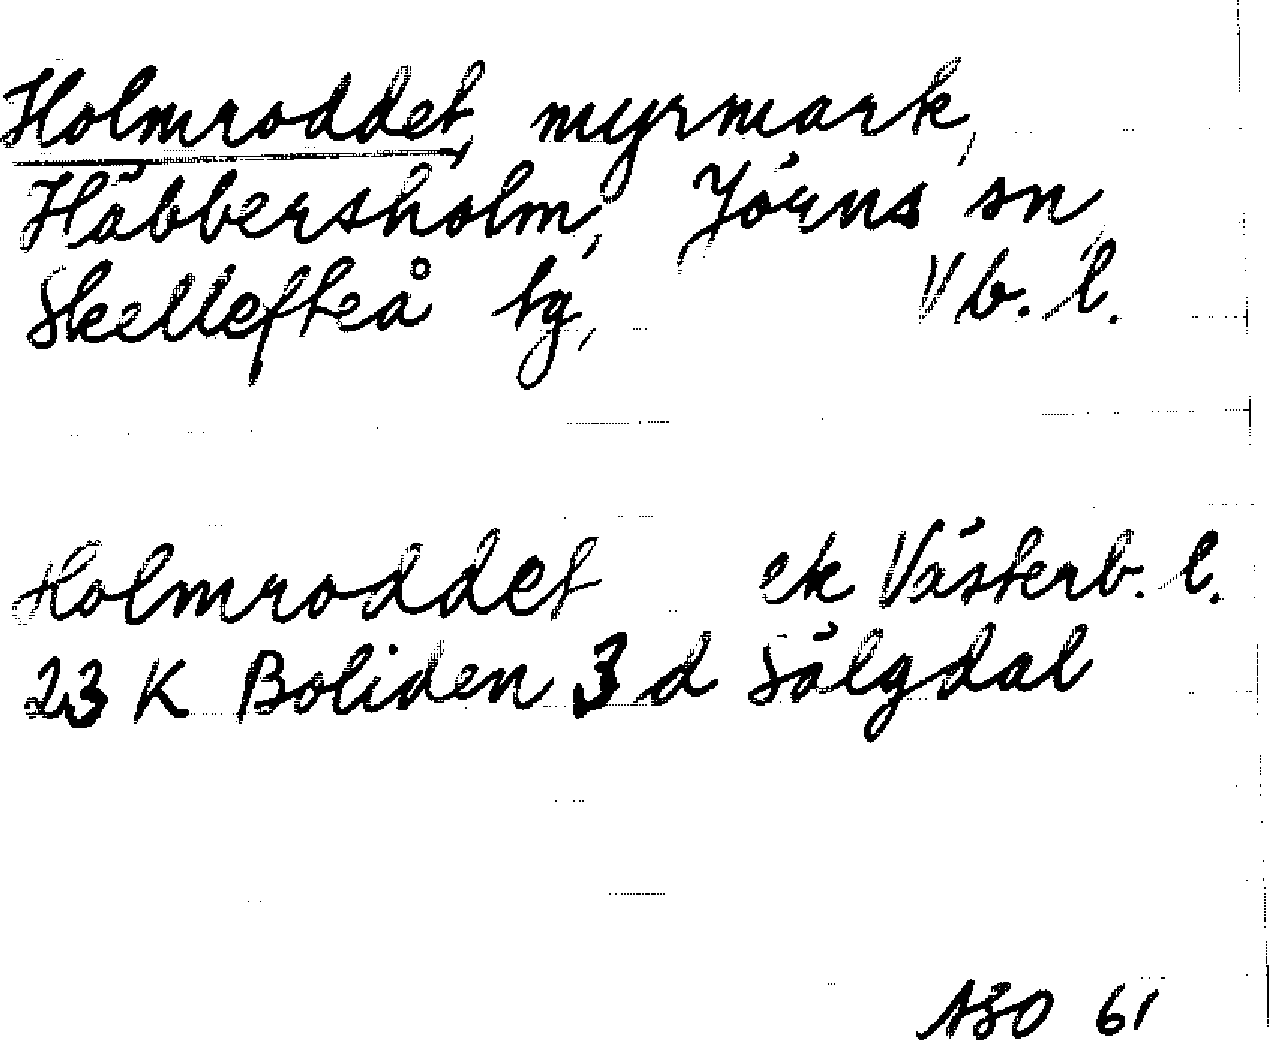 Holmroddet, myrmark,
Häbbersholm, Jörns sn
Skellefteå tg, Vb. l.
Holmroddet ek Västerb. l.
23 K Boliden 3 d Sälgdal
ASO 61